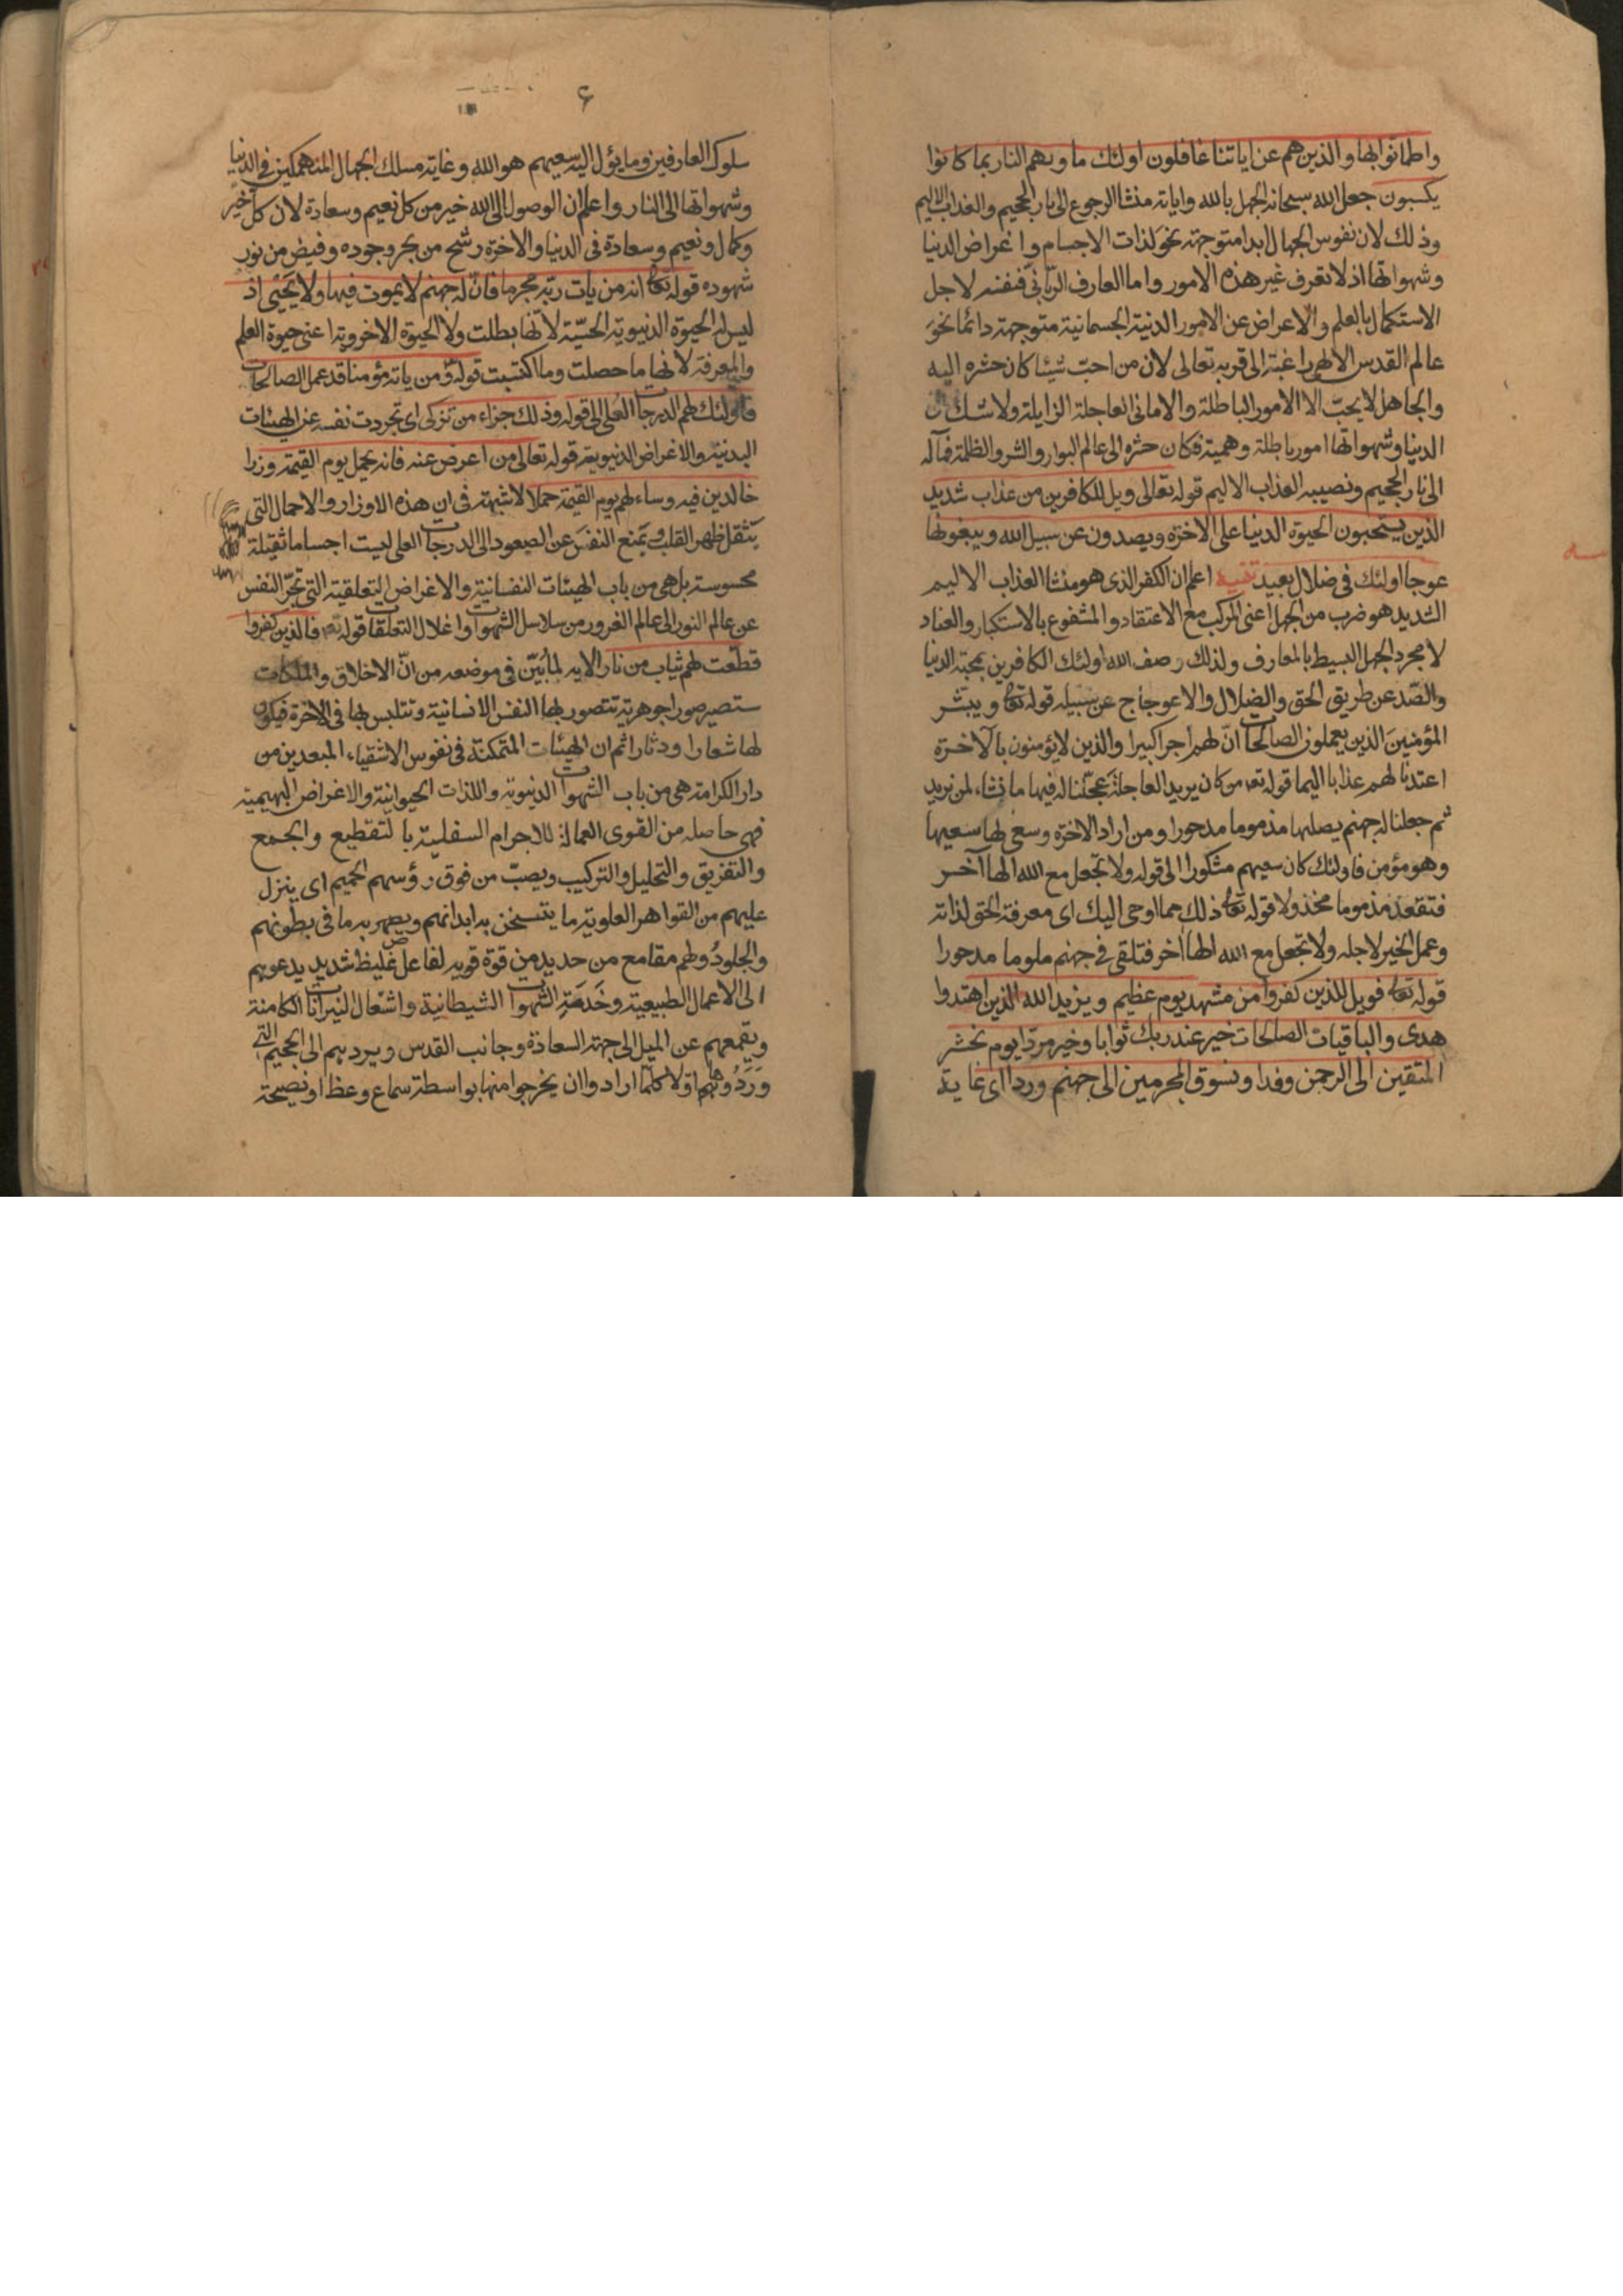 واطمانوا بها والذين هم عن اياتنا غافلون اولئك ماويهم النار بما كانوا
يكسبون جعل الله سبحانه الجهل بالله واياته منشا الرجوع الى نار الجحيم والعذاب الاليم
وذلك لان نفوس الجهال ابدا متوجهة نحو لذات الاجسام واغراض الدنيا
وشهواتها اذ لا تعرف غير هذه الامور واما العارف الربانى فنفسه لاجل
الاستكمال بالعلم والاعراض عن الامور الدنية الجسمانية متوجهة دائما نحو
عالم القدس الالهى راغبة الى قربه تعالى لان من احبّ شيئا كان حشره اليه
والجاهل لا يحبّ الا الامور الباطلة والامانى العاجلة الزايلة ولا شك ان
الدنيا وشهواتها امور باطلة وهمية فكان حشره الى عالم البوار والشر والظلمة فمآله
الى نار الجحيم ونصيبه العذاب الاليم قوله تعالى ويل للكافرين من عذاب شديد
الذين يستحبون الحيوة الدنيا على الاخرة ويصدون عن سبيل الله ويبغونها
عوجا اولئك فى ضلال بعيد تنبيه اعلم ان الكفر الذى هو منشا العذاب الاليم
الشديد هو ضرب من الجهل اعنى المركب مع الاعتقاد والمشفوع بالاستكبار والعناد
لا مجرد الجهل البسيط بالمعارف ولذلك وصف الله اولئك الكافرين بمحبة الدنيا
والصّد عن طريق الحق والضلال والاعوجاج عن سبيله قوله تعالى ويبشر
المؤمنين الذين يعملون الصالحات انّ لهم اجرا كبيرا والذين لا يؤمنون بالآخرة
اعتدنا لهم عذابا اليما قوله تعه من كان يريد العاجلة عجّلنا له فيها ما نشاء لمن نريد
ثم جعلنا له جهنم يصلها مذموما مدحورا ومن اراد الاخرة وسعى لها سعيها
وهو مؤمن فاولئك كان سعيهم مشكورا الى قوله ولا تجعل مع الله الها آخر
فتقعد مذموما مخذولا قوله تعالى ذلك مما اوحى اليك اى معرفة الحق لذاته
وعمل الخير لاجله ولا تجعل مع الله الها اخر فتلقى فى جهنم ملوما مدحورا
قوله تعالى فويل للذين كفروا من مشهد يوم عظيم ويزيد الله الذين اهتدوا
هدى والباقيات الصالحات خير عند ربك ثوابا وخير مردّا يوم نحشر
المتقين الى الرحمن وفدا ونسوق المجرمين الى جهنم وردا اى غاية
۶
سلوك العارفين وما يؤل اليه سعيهم هو الله وغاية مسلك الجهال المنهمكين فى الدنيا
وشهواتها الى النار واعلم ان الوصول الى الله خير من كل نعيم وسعادة لان كل خير
وكمال ونعيم وسعادة فى الدنيا والاخرة رشح من بحر وجوده وفيض من نور
شهوده قوله تعالى انه من يات ربّه مجرما فانّ له جهنم لا يموت فيها ولا يحيى اذ
ليس له الحيوة الدنيوية الحسّية لانّها بطلت ولا الحيوة الاخروية اعنى حيوة العلم
والمعرفة لانها ما حصلت وما اكتسبت قوله ومن ياته مؤمنا قد عمل الصالحات
فاولئك لهم الدرجات العلى الى قوله وذلك جزاء من تزكى اى تجردت نفسه عن الهيئات
البدنية والاغراض الدنيوية قوله تعالى من اعرض عنه فانه يحمل يوم القيمة وزرا
خالدين فيه وساء لهم يوم القيمة حملا لا شبهة فى ان هذه الاوزار والاحمال التى
يثقل ظهر القلب ويمنع النفس عن الصعود الى الدرجات العلى ليست اجساما ثقيلة
محسوسة بل هى من باب الهيئات النفسانية والاغراض التعلقية التى تجرّ النفس
عن عالم النور الى عالم الغرور من سلاسل الشهوات واغلال التعلقات قوله تعه فالذين كفروا
قطّعت لهم ثياب من نار الايه لما بيّن فى موضعه من انّ الاخلاق والملكات
ستصير صورا جوهرية تتصور بها النفس الانسانية وتتلبس بها فى الاخرة فيكون
لها شعارا ودثارا ثم ان الهيئات المتمكنة فى نفوس الاشقياء المبعدين من
دار الكرامة هى من باب الشهوات الدنيوية واللذات الحيوانية والاغراض البهيمية
فهى حاصله من القوى العمالة للاجرام السفلية بالتقطيع والجمع
والتفريق والتحليل والتركيب ويصبّ من فوق رؤسهم الحميم اى ينزل
عليهم من القواهر العلوية ما يتسخن به ابدانهم ويصهر به ما فى بطونهم
والجلود ولهم مقامع من حديد من قوة قوية لفاعل غليظ شديد يدعوهم
الى الاعمال الطبيعية وخدمة الشهوات الشيطانية واشتعال النيرانات الكامنة
ويقمعهم عن الميل الى جهة السعادة وجانب القدس ويردهم الى الجحيم التى
وردوها اولا كلما ارادوا ان يخرجوا منها بواسطة سماع وعظ او نصيحة